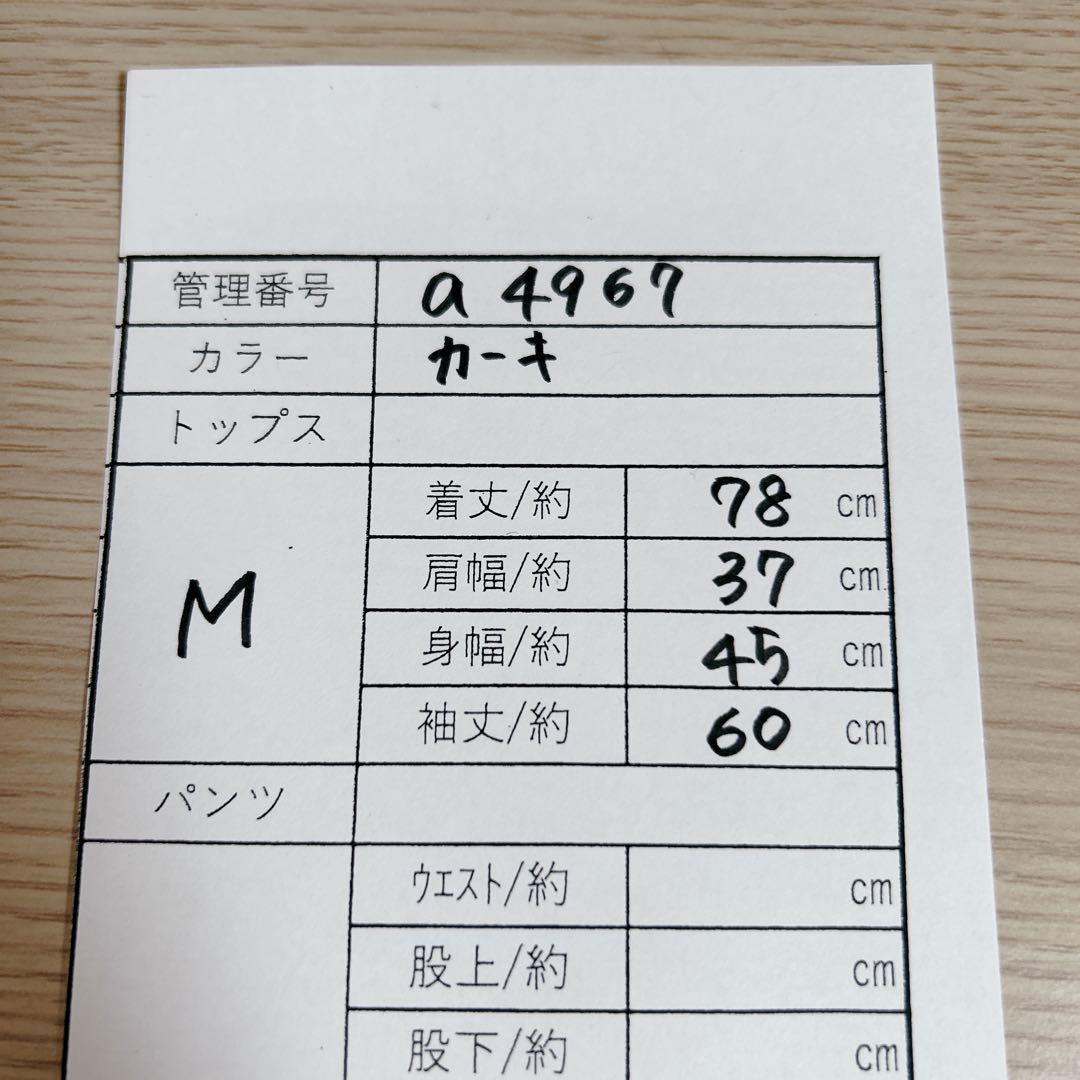 管理番号 a 4967
カラー カーキ
トップス
M
着丈/約 78 cm
肩幅/約 37 cm
身幅/約 45 cm
袖丈/約 60 cm
パンツ
ウエスト/約 cm
股上/約 cm
股下/約 cm